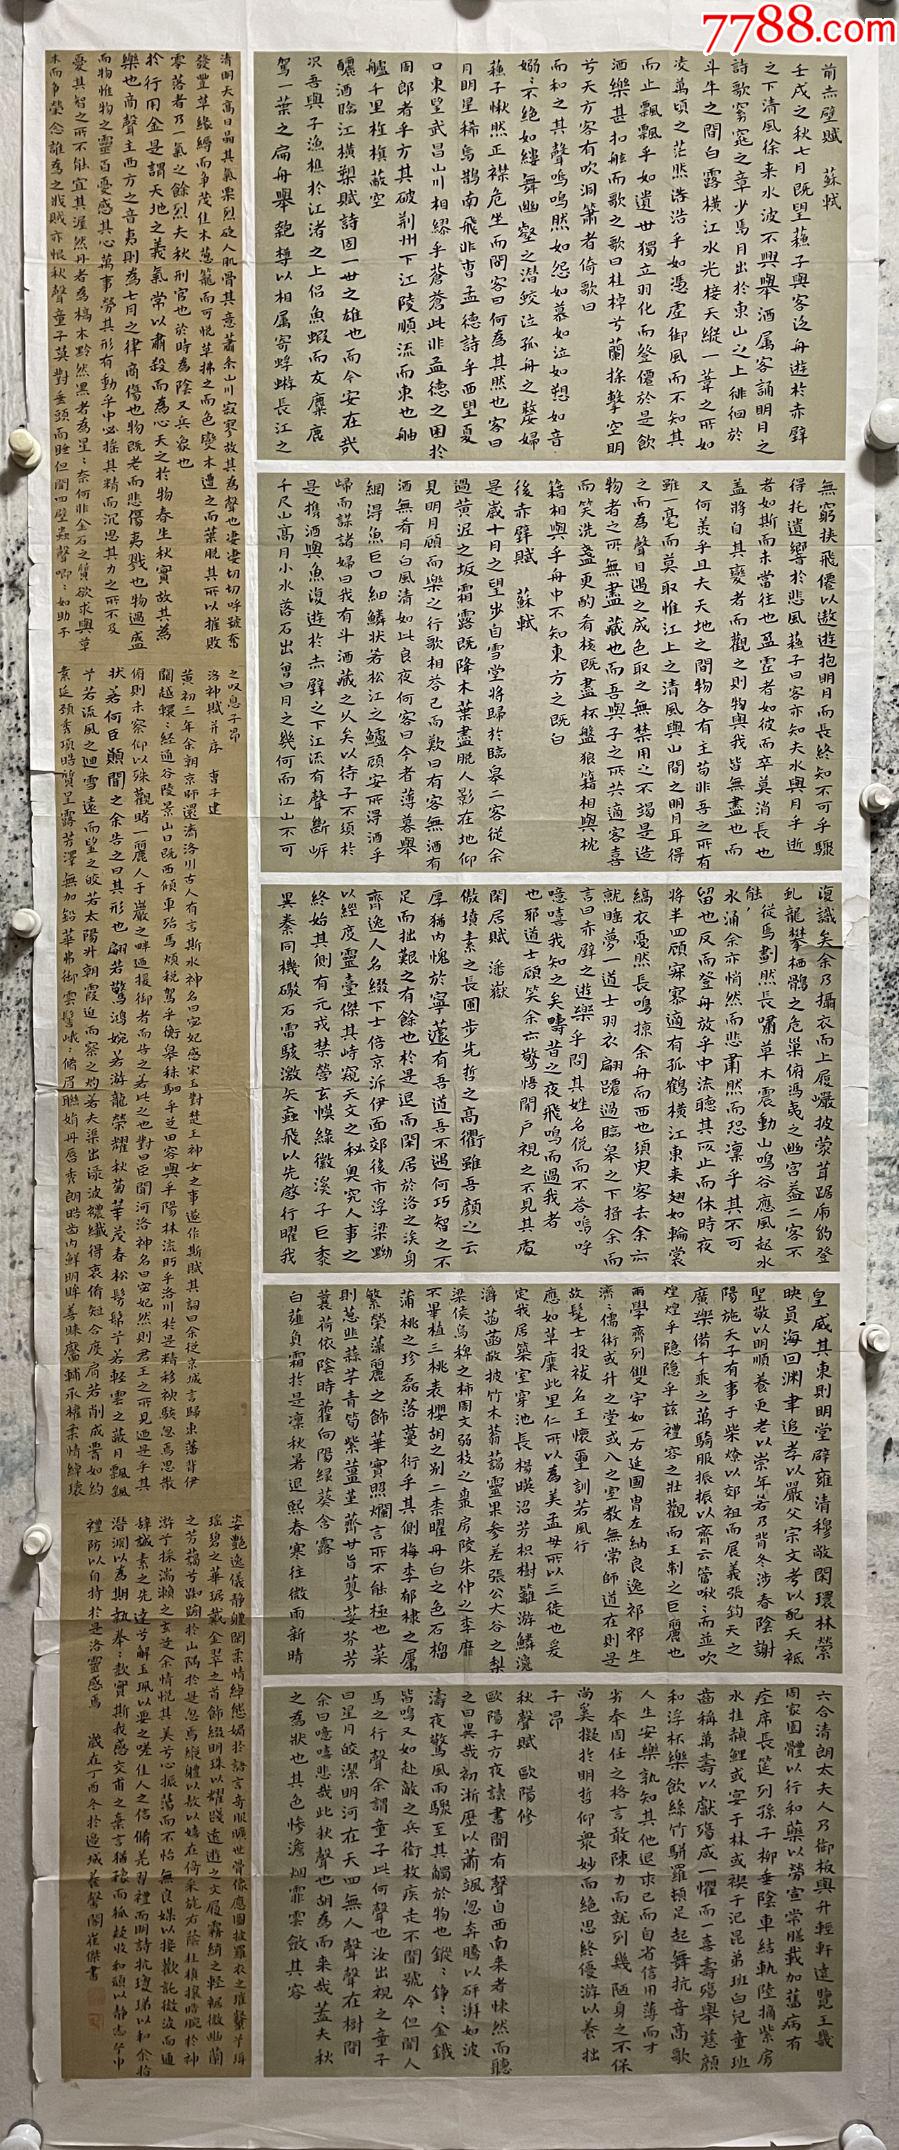 7788.com
前赤壁賦 蘇軾
壬戌之秋七月既望蘇子與客泛舟遊於赤壁
之下清風徐來水波不興舉酒属客誦明月之
詩歌窈窕之章少焉月出於東山之上徘徊於
斗牛之間白露橫江水光接天縱一葦之所如
凌萬頃之茫然浩浩乎如憑虛御風而不知其
而止飄飄乎如遺世獨立羽化而登僊於是飲
酒樂甚扣舷而歌之歌曰桂棹兮蘭槳擊空明
兮天方客有吹洞簫者倚歌曰
而和之其聲嗚嗚然如怨如慕如泣如愬如音
嫋:不絕如縷舞幽壑之潛蛟泣孤舟之嫠婦
蘇子愀然正襟危坐而問客曰何為其然也客曰
月明星稀烏鵲南飛非曹孟德詩乎西望夏
口東望武昌山川相繆乎蒼蒼此非孟德之困於
周郎者乎方其破荆州下江陵順流而東也舳
艫千里旌旗蔽空
釃酒臨江橫槊賦詩固一世之雄也而今安在哉
况吾與子漁樵於江渚之上侣魚蝦而友麋鹿
駕一葉之扁舟舉匏樽以相属寄蜉蝣長江之
無窮挟飛僊以敖遊抱明月而長終知不可乎驟
得托遺響於悲風蘇子曰客亦知夫水與月乎逝
者如斯而未嘗往也盈虛者如彼而卒莫消長也
蓋將自其變者而觀之則物與我皆無盡也而
又何羨乎且夫天地之間物各有主苟非吾之所有
雖一毫而莫取惟江上之清風與山間之明月耳得
之而為聲目遇之成色取之無禁用之不竭是造
物者之所無盡藏也而吾與子之所共適客喜
而笑洗盞更酌肴核既盡杯盤狼籍相與枕
籍相與乎舟中不知東方之既白
後赤壁賦 蘇軾
是歲十月之望步自雪堂將歸於臨皋二客從余
過黃泥之坂霜露既降木葉盡脱人影在地仰
見明月顧而樂之行歌相荅已而歎曰有客無酒有
酒無肴月白風清如此良夜何客曰今者薄暮舉
網得魚巨口細鱗狀若松江之鱸顧安所得酒乎
歸而謀諸婦曰我有斗酒藏之久矣以待子不須於
是携酒與魚復遊於赤壁之下江流有聲斷岸
千尺山高月小水落石出曾日月之幾何而江山不可
復識矣余乃攝衣而上履巉披蒙茸踞虎豹登
虬龍攀栖鶻之危巢俯馮夷之幽宮蓋二客不
能
從焉劃然長嘯草木震動山鳴谷應風起水
水涌余亦悄然而悲肅然而恐凜乎其不可
留也反而登舟放乎中流聽其所止而休時夜
將半四顧寂寥適有孤鶴橫江東来翅如輪裳
縞衣戛然長鳴掠余舟而西也須臾客去余亦
就睡夢一道士羽衣翩躚過臨皋之下揖余而
言曰赤壁之遊樂乎問其姓名俛而不荅嗚呼
噫嘻我知之矣疇昔之夜飛鳴而過我者
也邪道士顧笑余亦驚悟開户視之不見其處
閑居賦 潘嶽
倣墳素之長圃步先哲之高衢雖吾顏之云
厚猶内愧於寧蘧有吾道吾不遇何巧智之不
足而拙艱之有餘也於是退而閑居於洛之涘身
齊逸人名綴下士倍京泝伊面郊後市浮梁黝
以經度靈臺傑其峙窺天文之秘奥究人事之
終始其側有元戎禁營玄幙綠徽溪子巨黍
異絭同機礮石雷駭激矢蝱飛以先啟行曜我
皇威其東則明堂辟雍清穆敞閑環林縈
映員海回渊聿追孝以嚴父宗文考以配天祗
聖敬以明順養更老以崇年若乃背冬涉春陰謝
陽施天子有事于柴燎以郊祖而展義張鈞天之
廣樂備千乘之萬騎服振振以齊云管啾:而並吹
煌煌乎隐隐乎兹禮容之壯觀而王制之巨麗也
兩學齊列雙宇如一右延國胄左納良逸祁祁生
濟:儒術或升之堂或入之室教無常師道在則是
故髦士投祓名王懷璽訓若風行
應如草靡此里仁所以為美孟母所以三徙也爰
定我居築室穿池長楊映沼芳枳樹籬游鱗瀺
灂菡萏敷披竹木蓊藹靈果参差張公大谷之梨
梁侯烏椑之柿周文弱枝之棗房陵朱仲之李靡
不畢植三桃表櫻胡之别二柰曜丹白之色石榴
蒲桃之珍磊落蔓衍乎其側梅李郁棣之属
繁榮藻麗之飾華實照爛言所不能極也菜
則葱韭蒜芋青筍紫薑堇薺甘旨蓼荽芬芳
蘘荷依陰時藿向陽绿葵含露
白薤負霜於是凛秋暑退熙春寒往微雨新晴
六合清朗太夫人乃御板輿升輕軒遠覽王畿
周家園體以行和藥以勞宣常膳載加舊病有
痊席長筵列孫子柳垂陰車結軌陸摘紫房
水挂赬鯉或宴于林或禊于汜昆弟班白兒童班
齒稱萬壽以獻殤咸一懼而一喜壽殤舉慈顏
和浮杯樂飲絲竹駢羅頓足起舞抗音高歌
人生安樂孰知其他退求己而自省信用薄而才
劣奉周任之格言敢陳力而就列幾陋身之不保
尚奚擬於明哲仰衆妙而絕思終優游以養拙
子昂
秋聲賦 歐陽修
歐陽子方夜讀書聞有聲自西南来者悚然而聽
之曰異哉初淅瀝以蕭颯忽奔騰以砰湃如波
濤夜驚風雨驟至其觸於物也鏦:錚:金鐵
皆鳴又如赴敵之兵銜枚疾走不聞號令但聞人
馬之行聲余謂童子此何聲也汝出視之童子
曰星月皎潔明河在天四無人聲聲在樹間
余曰噫嘻悲哉此秋聲也胡為而来哉蓋夫秋
之為狀也其色慘澹烟霏雲斂其容
清明天高日晶其氣栗烈砭人肌骨其意蕭条山川寂寥故其為聲也凄凄切切呼號奮
發豐草綠縟而争茂佳木葱籠而可悅草拂之而色變木遭之而葉脱其所以摧敗
零落者乃一氣之餘烈夫秋刑官也於時為陰又兵象也
於行用金是謂天地之義氣常以肅殺而為心天之於物春生秋實故其為
樂也商聲主西方之音夷則為七月之律商傷也物既老而悲傷夷戮也物過盛
而物惟物之靈百憂感其心萬事勞其形有動乎中必摇其精而沉思其力之所不及
憂其智之所不能宜其渥然丹者為槁木黟然黑者為星:奈何非金石之質欲求與草
木而争榮念誰為之戕賊亦恨秋聲童子莫對垂頭而睡但聞四壁蟲聲唧:如助予
之叹息子昂
洛神賦并序 曹子建
黃初三年余朝京師還濟洛川古人有言斯水神名曰宓妃感宋玉對楚王神女之事遂作斯賦其詞曰余從京城言歸東藩背伊
闕越轘經通谷陵景山日既西傾車殆馬煩税駕乎衡皋秣駟乎芝田容與乎陽林流眄乎洛川於是精移神駭忽焉思散
俯則未察仰以殊觀睹一麗人于巖之畔迺援御者而告之若此之也對曰臣聞河洛神名曰宓妃然則君王之所見迺是乎其
狀若何臣願聞之余告之曰其形也翩若驚鴻婉若游龍榮耀秋菊華茂春松髣髴兮若輕雲之蔽月飄飖
兮若流風之迴雪遠而望之皎若太陽升朝霞迫而察之灼若夫渠出渌波襛纖得衷脩短合度肩若削成署如约
素延頸秀項皓質呈露芳澤無加鉛華弗御雲髻峨:脩眉聯娟丹唇秀朗皓齒内鮮明眸善睞靨輔承權柔情綽瓌
姿艷逸儀静軆閑柔情綽態媚於語言奇服曠世骨像應圖披羅衣之璀粲兮珥
瑶碧之華琚戴金翠之首飾綴明珠以耀踐遠遊之文履霧綃之輕裾微幽蘭
之芳藹兮踟蹰於山隅於是忽焉縱軆以敖以嬉左倚采旄右蔭桂旗攘皓腕於神
滸兮採湍瀨之玄芝余情悅其美兮心振蕩而不怡無良媒以接歡託微波而通
辞誠素之先達兮解玉珮以要之嗟佳人之信脩羌習禮而明詩抗瓊珶以和余指
潜渊以為期執拳:款實斯我感交甫之棄言猶豫而狐疑收和顔以静志兮申
禮防以自持於是洛靈感焉 歲在丁酉冬於邊城養馨閣崔傑書